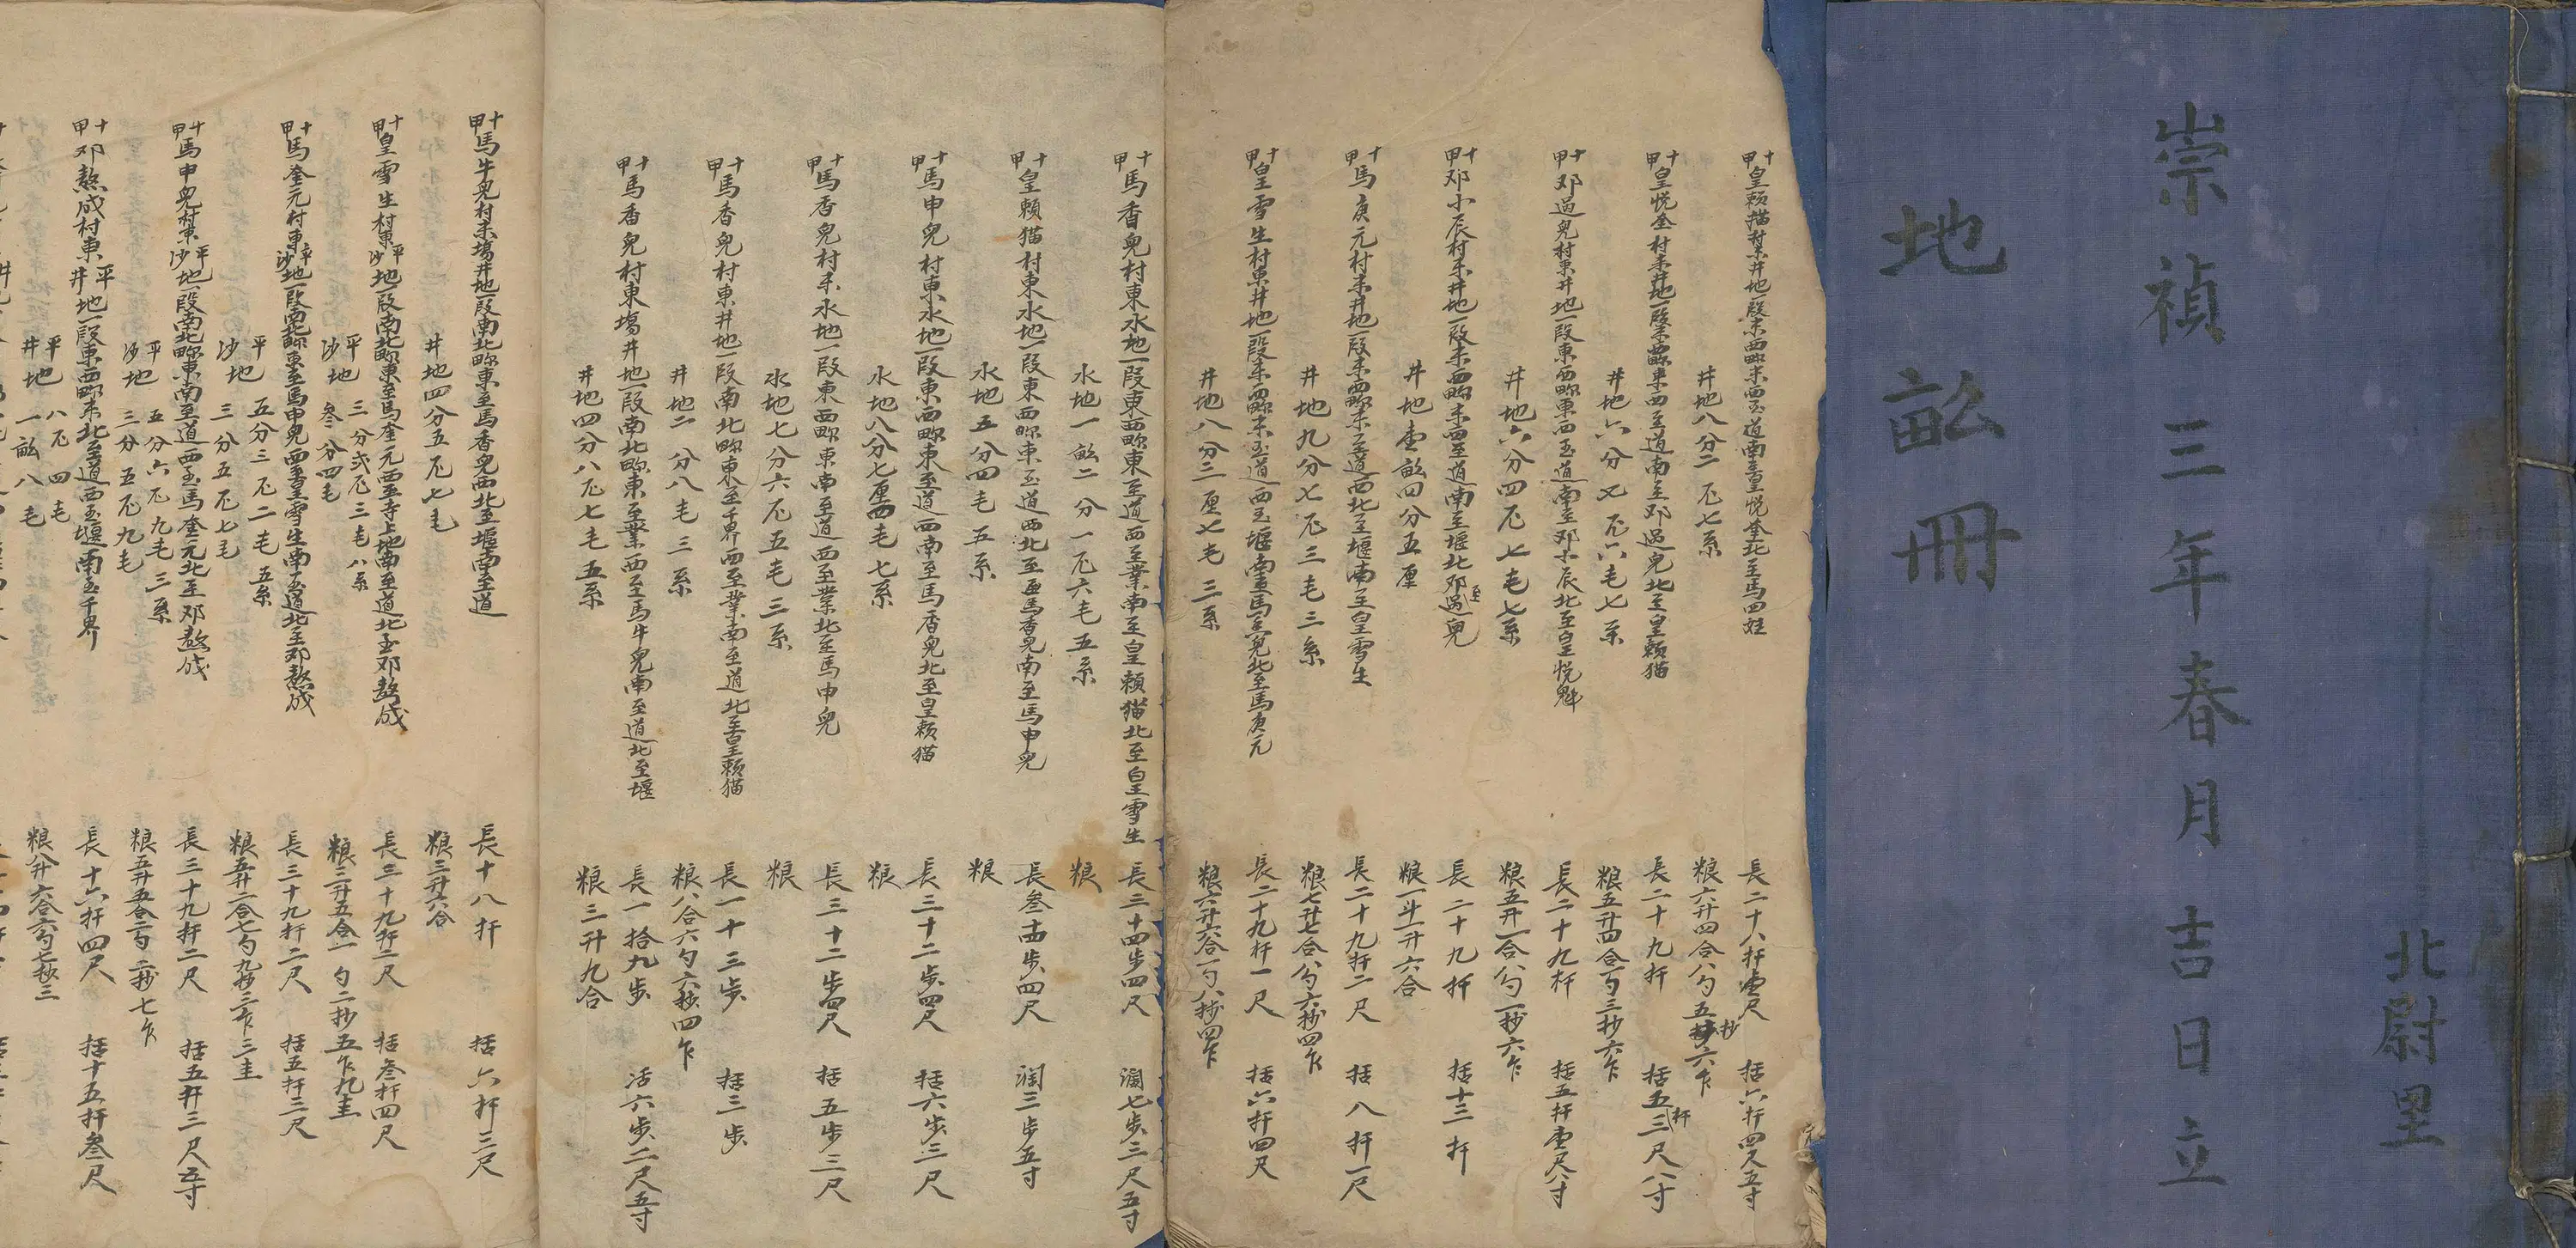 北尉里
崇禎三年春月吉日立
地畝冊
十甲皇賴猫村東井地一段東西畛東西至道南至皇悅奎北至馬四娃
長二十八杆壹尺
括六杆四尺五寸
井地八分二厘七系
粮六升四合八勺五抄六乍
十甲皇悅奎村東井地一段東西畛東西至道南至邓過兒北至皇賴猫
長二十九杆
括五杆三尺八寸
井地六分七厘六毛七系
粮五升四合一勺三抄六乍
十甲邓過兒村東井地一段東西畛東西至道南至邓小辰北至皇悅魁
長二十九杆
括五杆壹尺八寸
井地六分四厘七毛七系
粮五升一合八勺一抄六乍
十甲邓小辰村東井地一段東西畛東西至道南至堰北至邓過兒
長二十九杆
括十三杆
井地壹畝四分五厘
粮一斗一升六合
十甲馬庚元村東井地一段東西畛東至道西北至堰南至皇雪生
長二十九杆二尺
括八杆一尺
井地九分七厘三毛三系
粮七升七合八勺六抄四乍
十甲皇雪生村東井地一段東西畛東至道西至堰南至馬兒北至馬庚元
長二十九杆一尺
括六杆四尺
井地八分二厘七毛三系
粮六升六合一勺八抄四乍
十甲馬香兒村東水地一段東西畛東至道西至業南至皇賴猫北至皇雪生
長三十四步四尺
濶七步三尺五寸
水地一畝二分一厘六毛五系
粮
十甲皇賴猫村東水地一段東西畛東至道西北至馬香兒南至馬申兒
長叁十四步四尺
濶三步五寸
水地五分四毛五系
粮
十甲馬申兒村東水地一段東西畛東至道西南至馬香兒北至皇賴猫
長三十二步四尺
括六步三尺
水地八分七厘四毛七系
粮
十甲馬香兒村東水地一段東西畛東南至道西至業北至馬申兒
長三十二步四尺
括五步三尺
水地七分六厘五毛三系
粮
十甲馬香兒村東井地一段南北畛東至千界西至業南至道北至皇賴猫
長一十三步
括三步
井地二分八毛三系
粮八合六勺六抄四乍
十甲馬香兒村東塲井地一段南北畛東至業西至馬牛兒南至道北至堰
長一拾九步
活六步二尺五寸
井地四分八厘七毛五系
粮三升九合
十甲馬牛兒村東塲井地一段南北畛東至馬香兒西北至堰南至道
長十八杆
括六杆三尺
井地四分五厘七毛
粮三升六合
十甲皇雪生村東平沙地一段南北畛東至馬奎元西至寺上地南至道北至邓熬成
長三十九杆二尺
括叁杆四尺
平地三分弍厘三毛八系
沙地叁分四毛
粮三升五合一勺二抄五乍九圭
十甲馬奎元村東平沙地一段南北畛東至馬申兒西至皇雪生南至道北至邓熬成
長三十九杆二尺
括五杆三尺
平地五分三厘二毛五系
沙地三分五厘七毛
粮五升二合七勺九抄三乍三圭
十甲馬申兒村東平沙地一段南北畛東南至道西至馬奎元北至邓熬成
長三十九杆二尺
括五杆三尺五寸
平地五分六厘九毛三系
沙地三分五厘九毛
粮五升五合二勺二抄七乍
十甲邓熬成村東平井地一段東西畛東北至道西至堰南至千界
長十六杆四尺
括十五杆叁尺
平地八厘四毛
井地一畝八毛
粮八升六合六勺七抄三